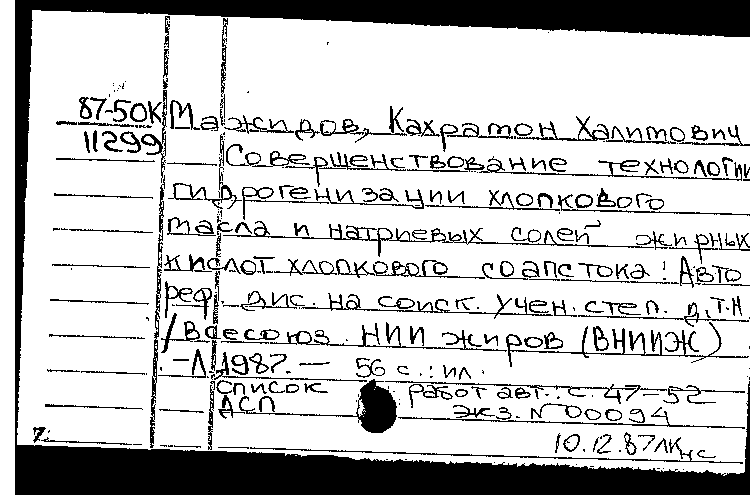 87-50К Мажидов, Кахрамон Халимович
11299 Совершенствование технологии
гидрогенизации хлопкового
масла и натриевых солей жирных
кислот хлопкового соапстока: Авто
реф. дис. на соиск. учен. степ. д.т.н
/Всесоюз. НИИ жиров (ВНИИЖ)
-Л 1987. — 56 с.: ил.
Список работ авт.: с. 47-52
ДСП экз. N 00094
10.12.87